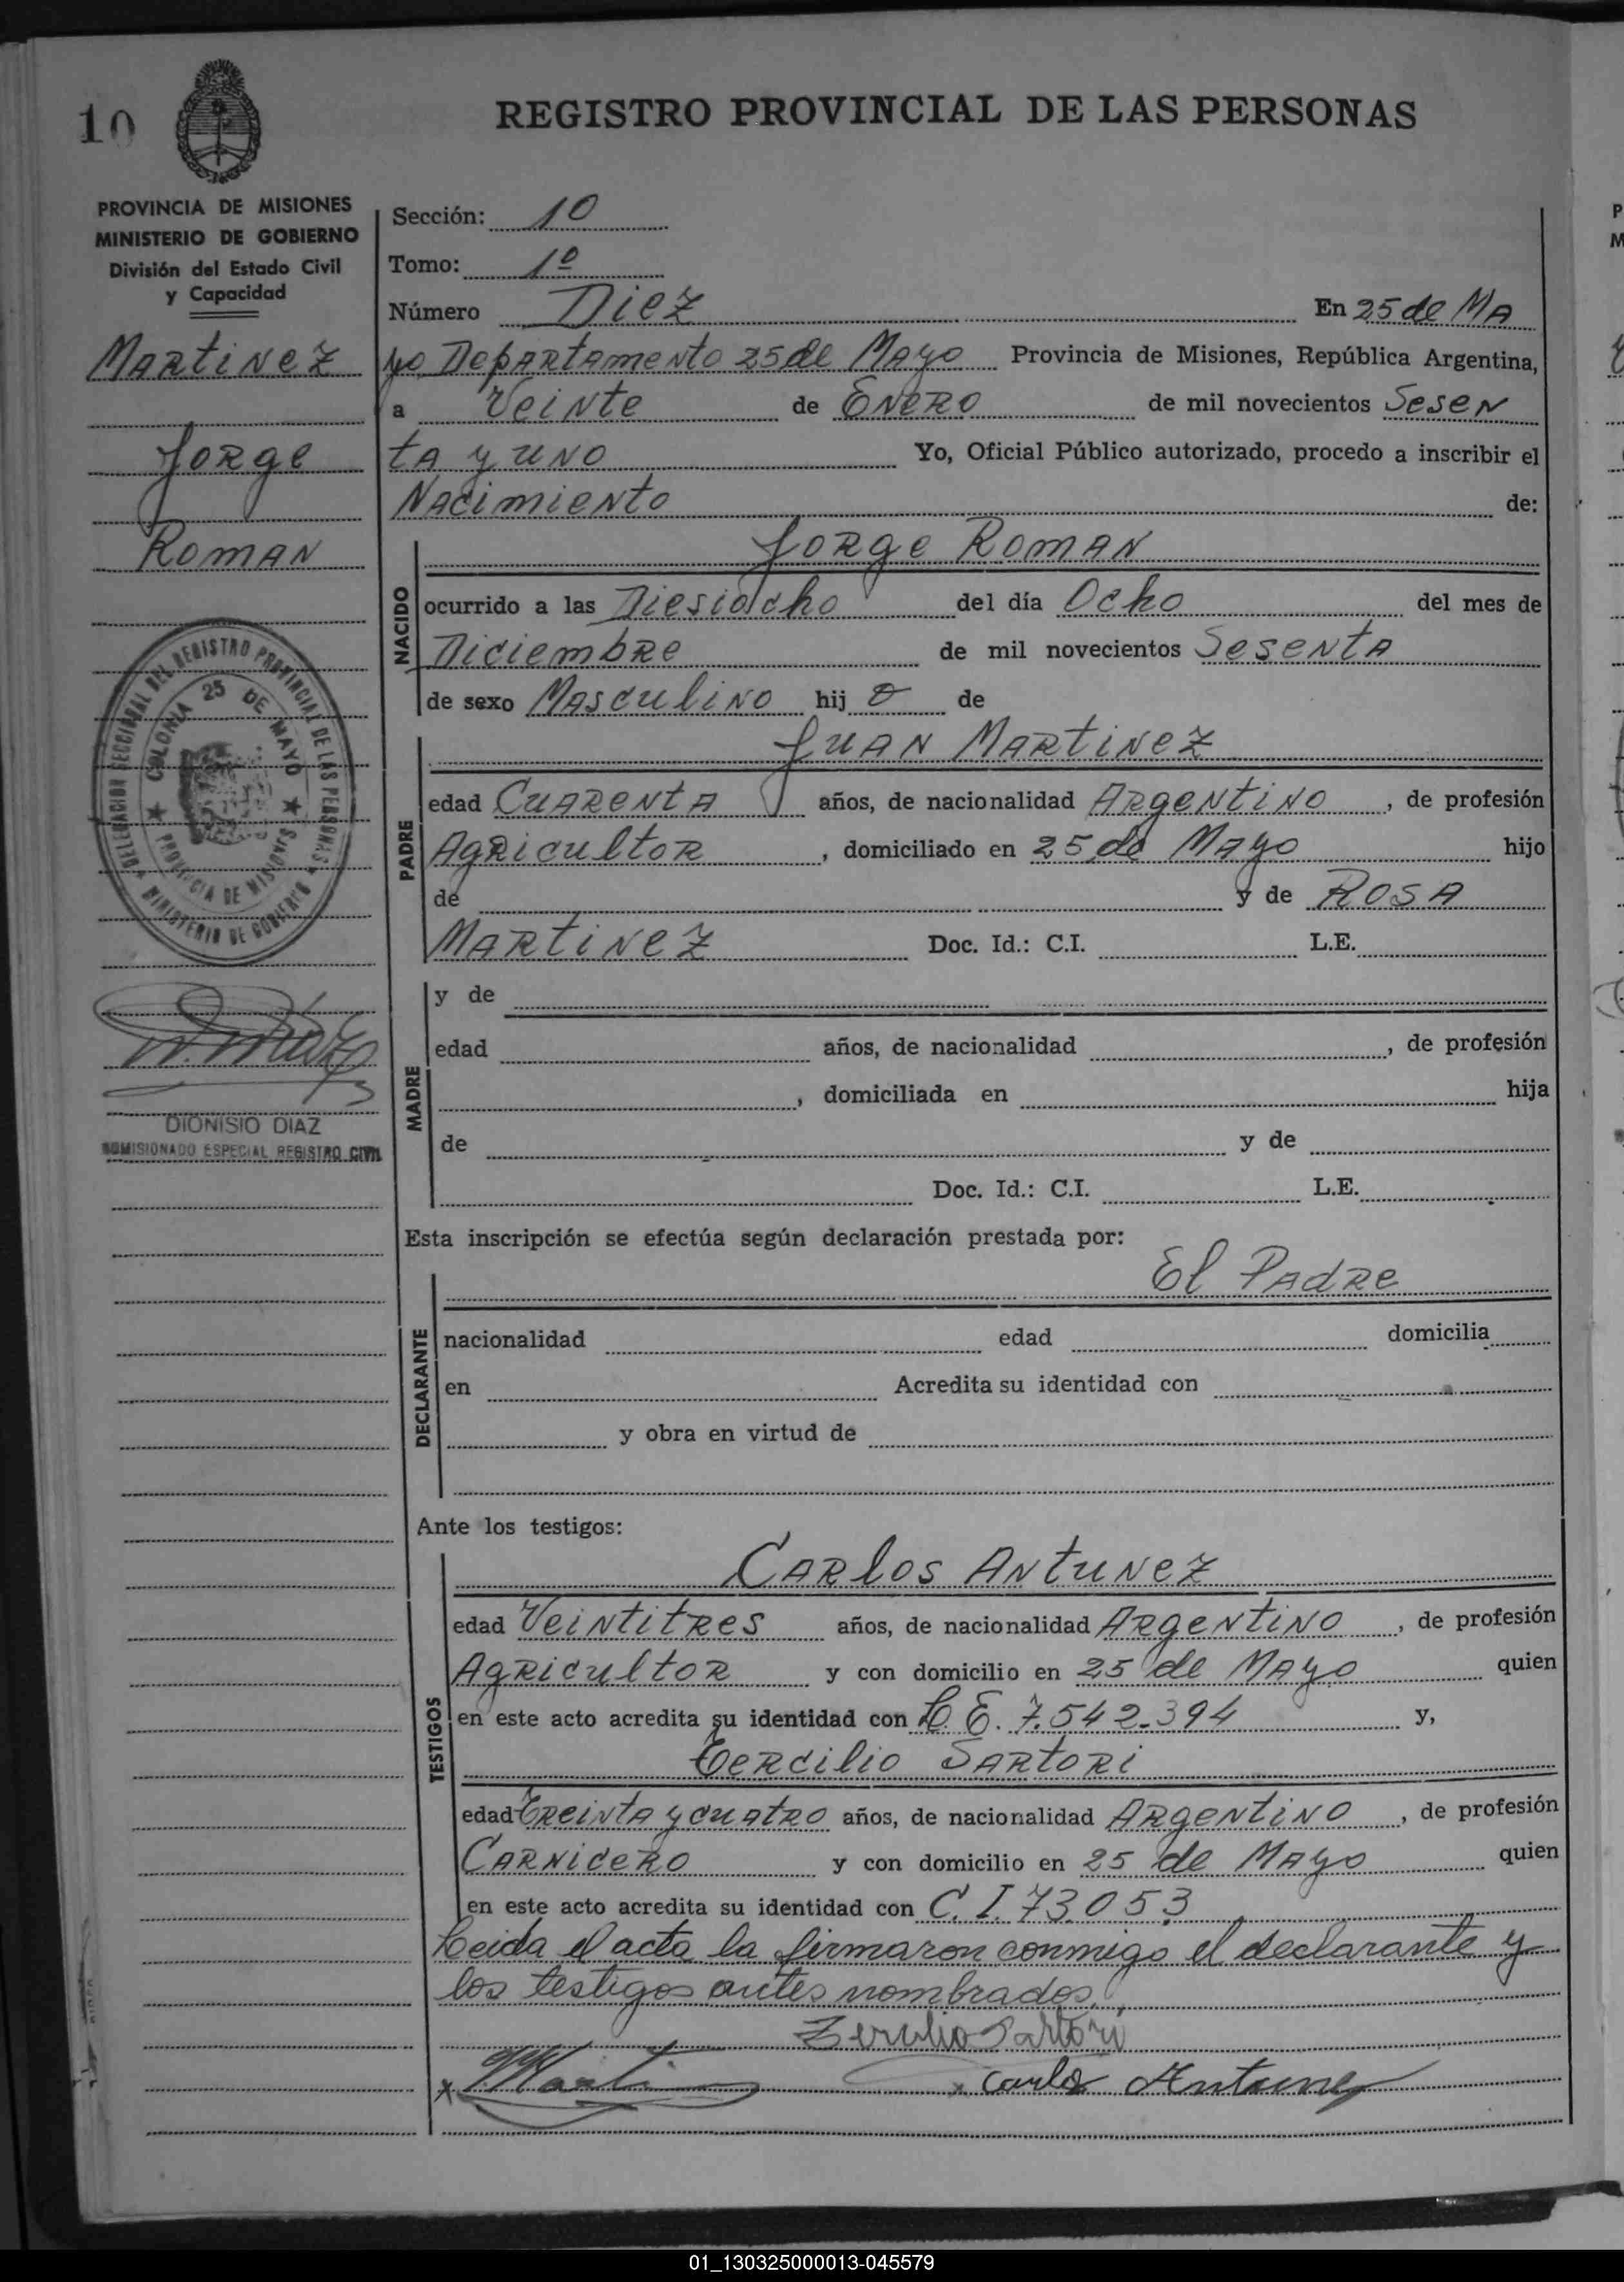 10
REGISTRO PROVINCIAL DE LAS PERSONAS
PROVINCIA DE MISIONES
MINISTERIO DE GOBIERNO
División del Estado Civil
y Capacidad
Martinez
Jorge
Roman
DELEGACION SECCIONAL DEL REGISTRO PROVINCIAL DE LAS PERSONAS
MINISTERIO DE GOBIERNO
COLONIA 25 DE MAYO
PROVINCIA DE MISIONES
DIONISIO DIAZ
COMISIONADO ESPECIAL REGISTRO CIVIL
Sección: 10
Tomo: 1º
Número Diez En 25 de Ma
yo Departamento 25 de Mayo Provincia de Misiones, República Argentina,
a Veinte de Enero de mil novecientos Sesen
ta y uno Yo, Oficial Público autorizado, procedo a inscribir el
Nacimiento de:
Jorge Roman
NACIDO
ocurrido a las Diesiocho del día Ocho del mes de
Diciembre de mil novecientos Sesenta
de sexo Masculino hij o de
Juan Martinez
PADRE
edad Cuarenta años, de nacionalidad Argentino, de profesión
Agricultor, domiciliado en 25 de Mayo hijo
de y de Rosa
Martinez Doc. Id.: C.I. L.E.
y de
MADRE
edad años, de nacionalidad , de profesión
, domiciliada en hija
de y de
Doc. Id.: C.I. L.E.
Esta inscripción se efectúa según declaración prestada por:
El Padre
DECLARANTE
nacionalidad edad domicilia
en Acredita su identidad con
y obra en virtud de
Ante los testigos:
Carlos Antunez
TESTIGOS
edad Veintitres años, de nacionalidad Argentino, de profesión
Agricultor y con domicilio en 25 de Mayo quien
en este acto acredita su identidad con L.E. 7.542.394 y,
Tercilio Sartori
edad Treinta y cuatro años, de nacionalidad Argentino, de profesión
Carnicero y con domicilio en 25 de Mayo quien
en este acto acredita su identidad con C.I. 73.053
Leida el acta la firmaron conmigo el declarante y
los testigos antes nombrados.
Sartori
x x Carlos Antunez
01_130325000013-045579